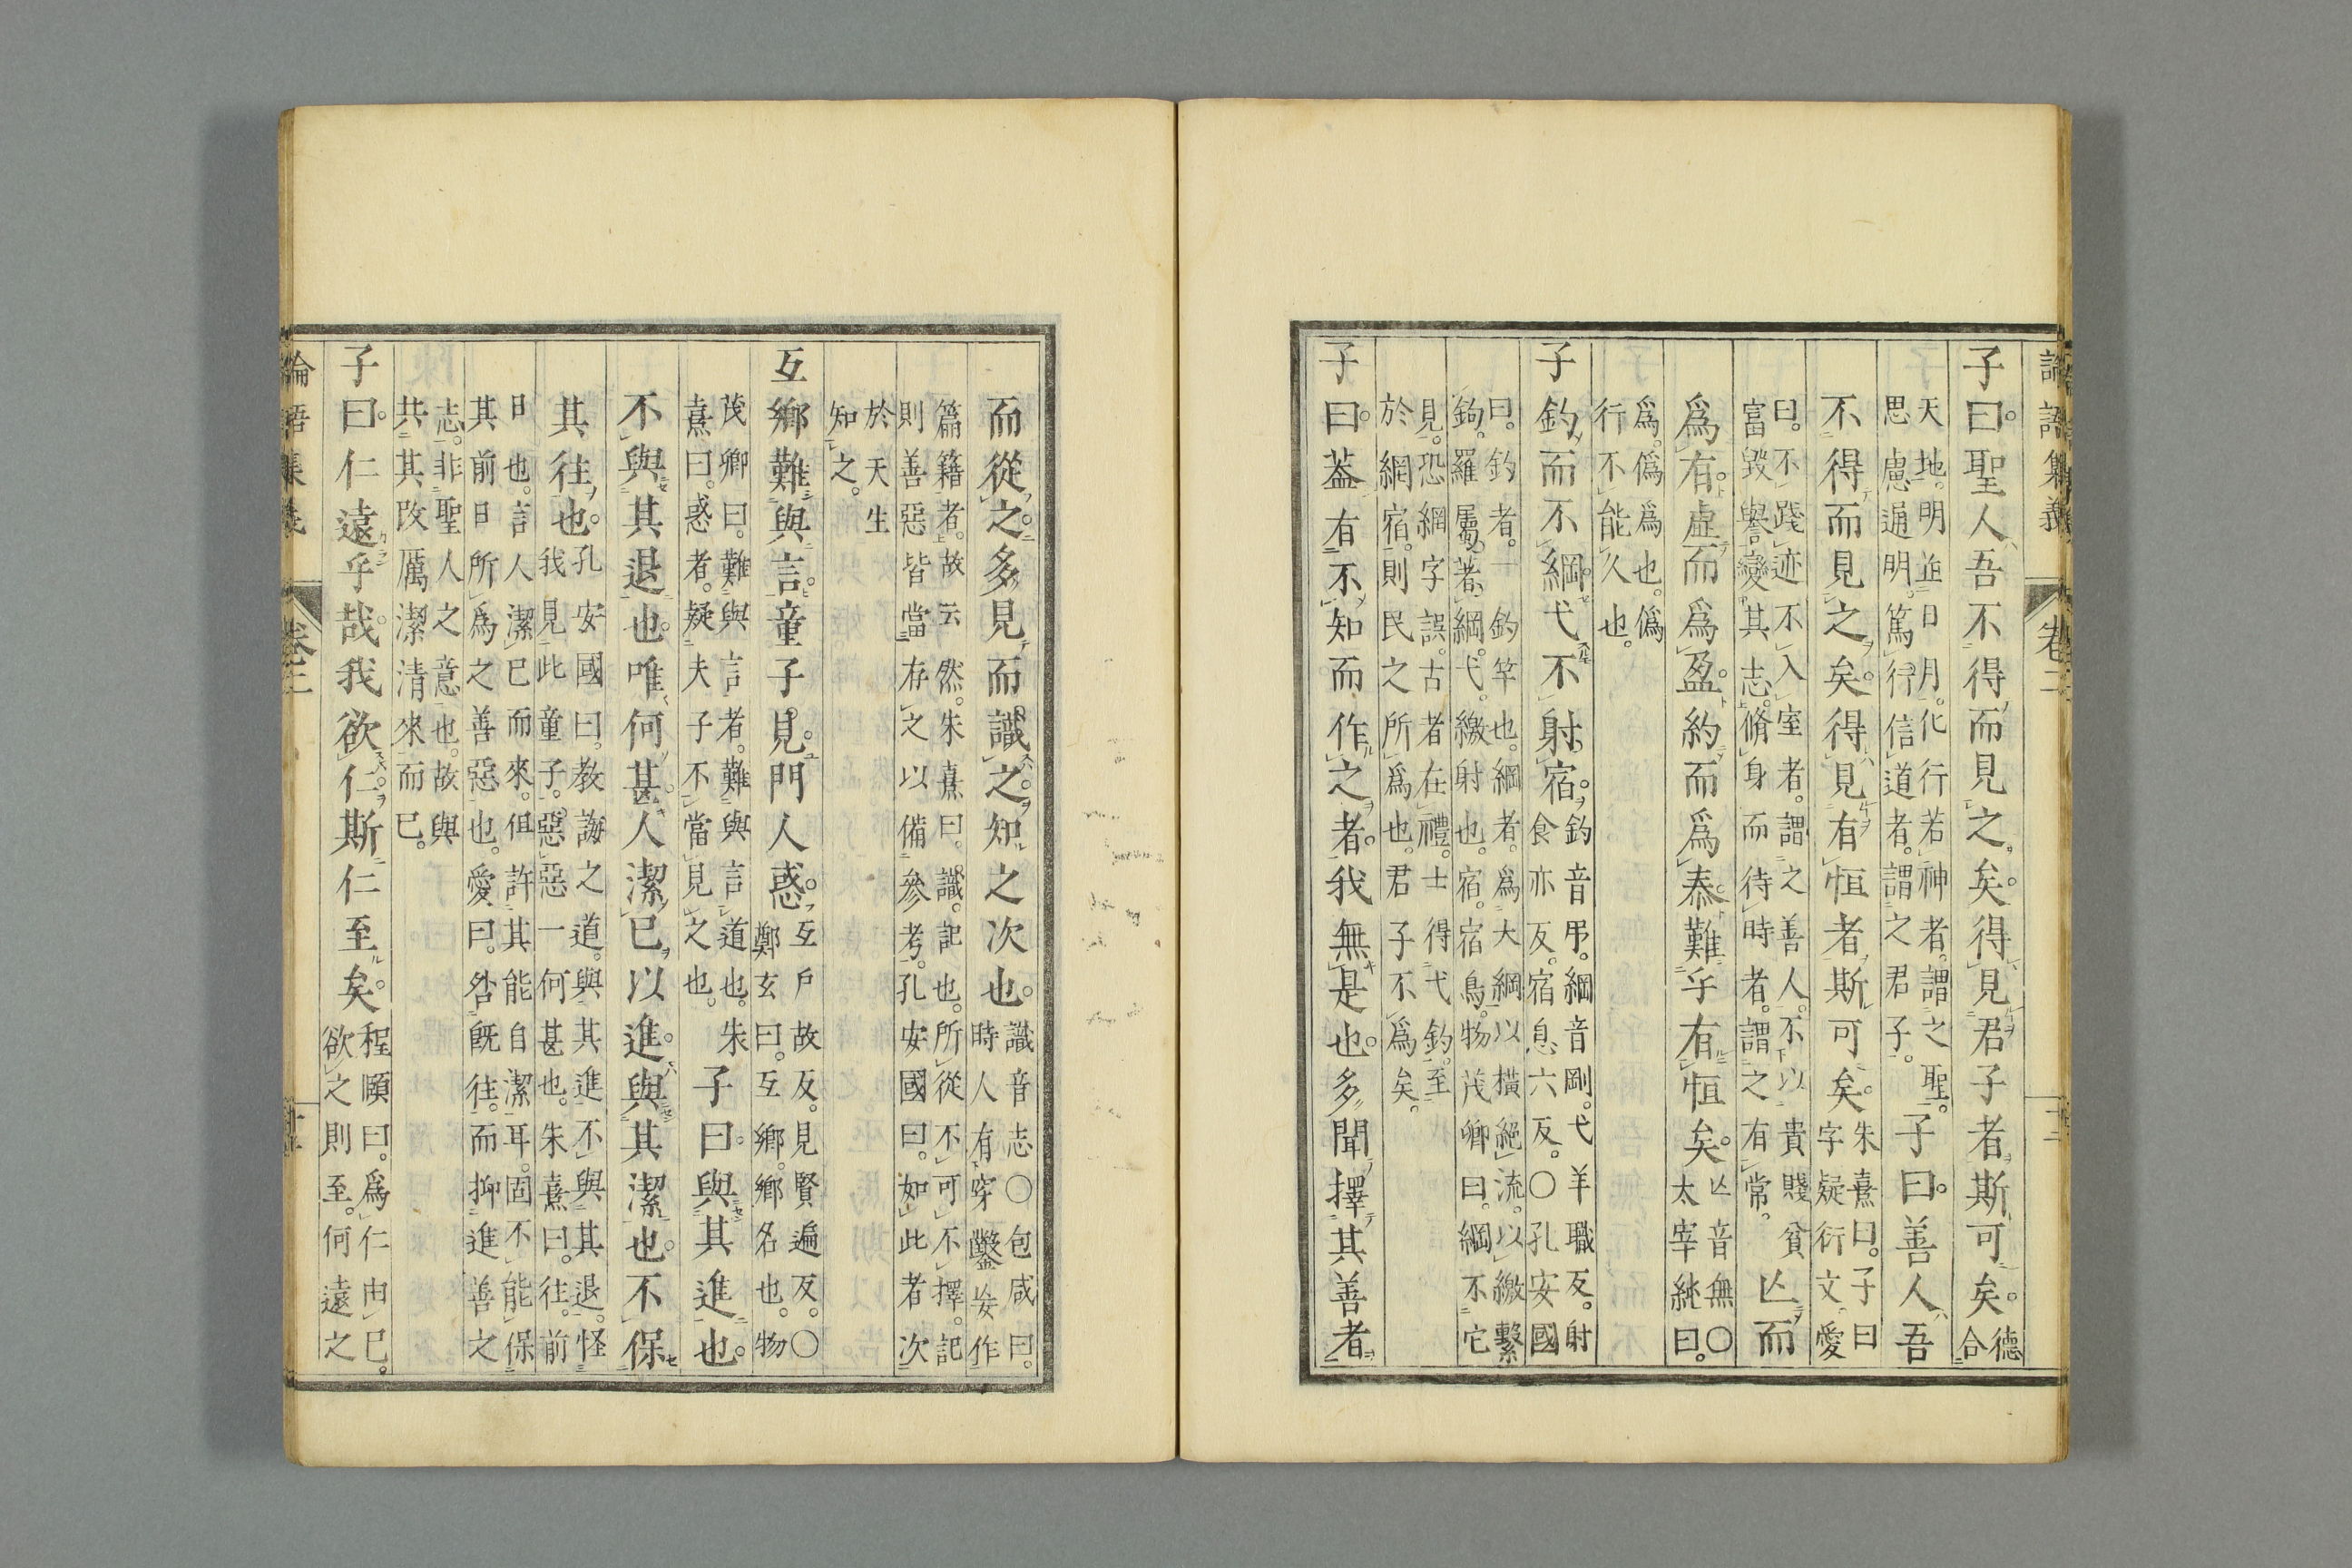 論語集義　卷二
子曰。聖人吾不得而見之。矣。得見君子者斯可矣。
德
合
天地。明並日月。化行若神者。謂之聖。
思慮通明。篤行信道者。謂之君子。
子曰。善人吾
不得而見之矣。得見有恒者斯可矣。
朱熹曰。子曰
字疑衍文。愛
曰。不踐迹不入室者。謂之善人。不以貴賤貧
富毀譽。變其志。脩身而待時者。謂之有常。
亾而
爲有。虛而爲盈。約而爲泰。難乎有恒矣。
亾音無〇
太宰純曰。
爲。僞爲也。僞
行不能久也。
子釣而不綱。弋不射宿。
釣音弔。綱音剛。弋羊職反。射
食亦反。宿息六反。〇孔安國
曰。釣者。一釣竿也。綱者。爲大綱以橫絕流。以繳繫
鉤。羅屬著綱。弋。繳射也。宿。宿鳥。物茂卿曰。綱不它
見。恐網字誤。古者在禮。士得弋釣。至
於網宿。則民之所爲也。君子不爲矣。
子曰。葢有不知而作之者。我無是也。多聞擇其善者
而從之。多見而識之。知之次也。
識音志〇包咸曰。
時人有穿鑿妄作
篇籍者。故云然。朱熹曰。識。記也。所從不可不擇。記
則善惡皆當存之以備參考。孔安國曰。如此者次
於天生
知之。
互鄉難與言。童子見。門人惑。
互戶故反。見賢遍反。〇
鄭玄曰。互鄉。鄉名也。物
茂卿曰。難與言者。難與言道也。朱
熹曰。惑者。疑夫子不當見之也。
子曰。與其進也。
不與其退也。唯何甚。人潔已以進。與其潔也。不保
其往也。
孔安國曰。教誨之道。與其進不與其退。怪
我見此童子。惡惡一何甚也。朱熹曰。往。前
日也。言人潔已而來。但許其能自潔耳。固不能保
其前日所爲之善惡也。愛曰。咎既往。而抑進善之
志。非聖人之意也。故與
共其改厲潔清來而已。
子曰。仁遠乎哉。我欲仁。斯仁至矣。
程頤曰。爲仁由已。
欲之則至。何遠之
論語集義　卷二